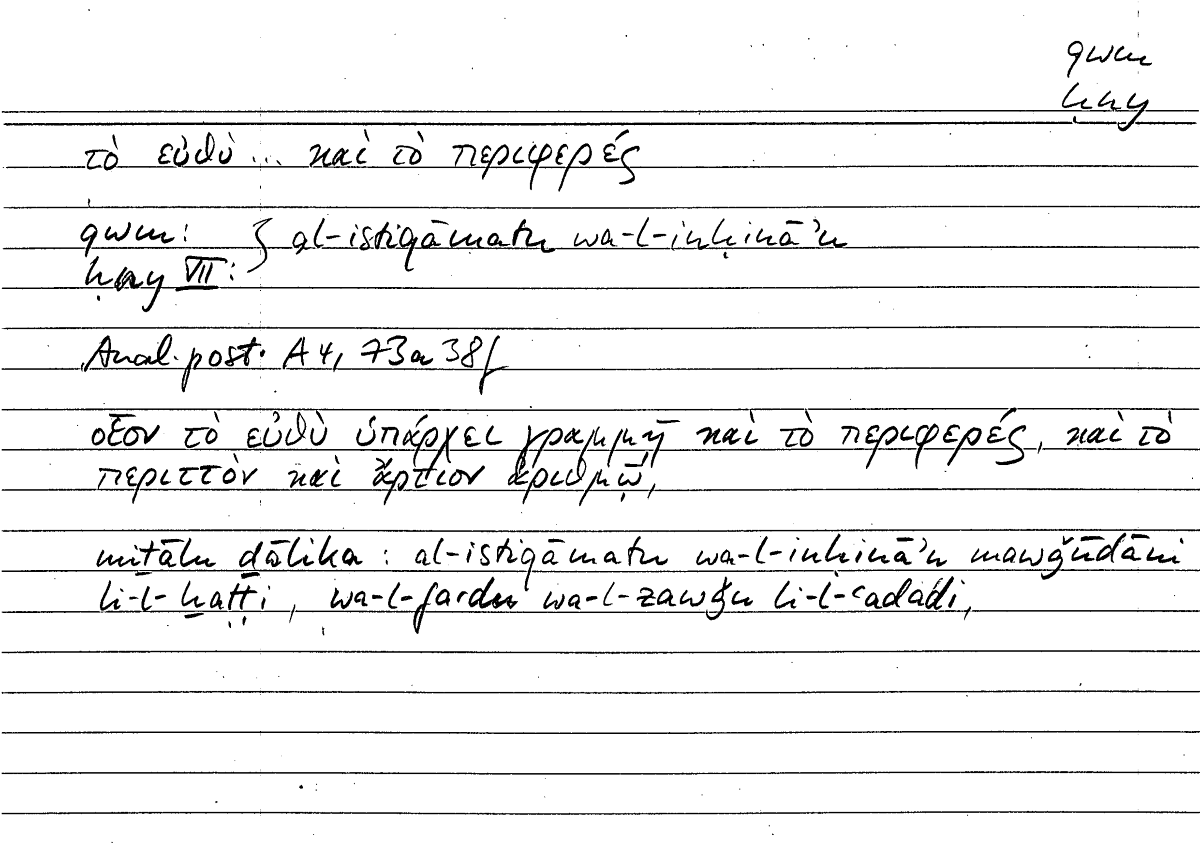 qwm
ḥny
τὸ εὐθὺ ... καὶ τὸ περιφερές
qwm: } al-istiqāmatu wa-l-inḥināʾu
ḥny VII:
Anal. post. A 4, 73a38f
οἷον τὸ εὐθὺ ὑπάρχει γραμμῇ καὶ τὸ περιφερές, καὶ τὸ
περιττὸν καὶ ἄρτιον ἀριθμῷ,
miṯālu ḏālika : al-istiqāmatu wa-l-inḥināʾu mawǧūdāni
li-l-ḫaṭṭi, wa-l-fardu wa-l-zawǧu li-l-ʿadadi,